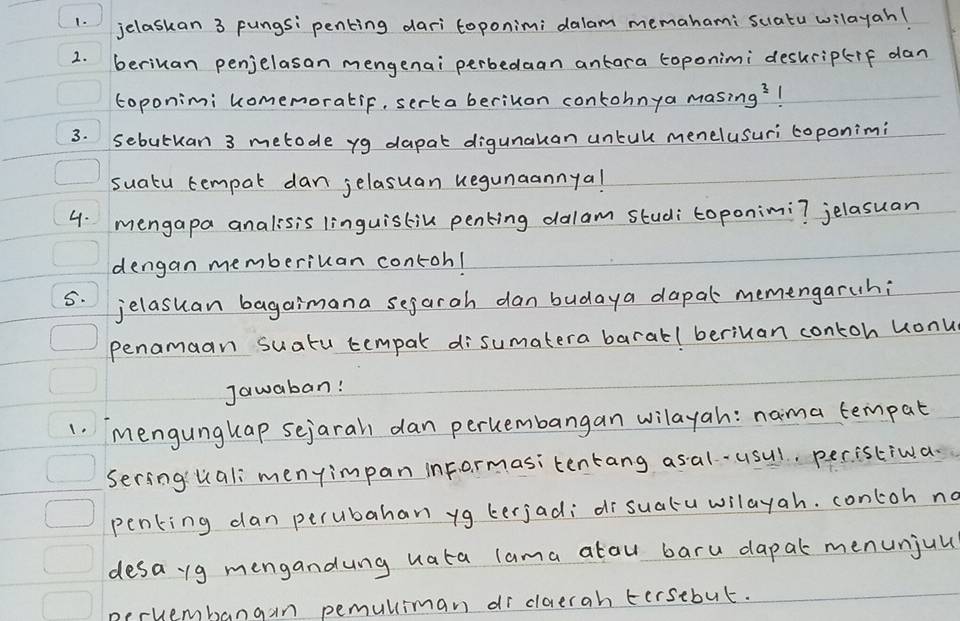 1. jelaskan 3 fungsi penting dari toponimi dalam memahami suatu wilayah!
2. berikan penjelasan mengenai perbedaan antara toponimi deskriptif dan
toponimi komemoratif, serta berikan contohnya masing²!
3. sebutkan 3 metode yg dapat digunakan untuk menelusuri toponimi
suatu tempat dan jelaskan kegunaannya!
4. mengapa analisis linguistik penting dalam studi toponimi? jelaskan
dengan memberikan contoh!
5. jelaskan bagaimana sejarah dan budaya dapat memengaruhi
penamaan suatu tempat di sumatera barat! berikan contoh konk
Jawaban:
1. mengungkap sejarah dan perkembangan wilayah: nama tempat
sering kali menyimpan informasi tentang asal-usul, peristiwa
penting dan perubahan yg terjadi di suatu wilayah. contoh na
desa yg mengandung kata lama atau baru dapat menunjuk
perkembangan pemukiman di daerah tersebut.